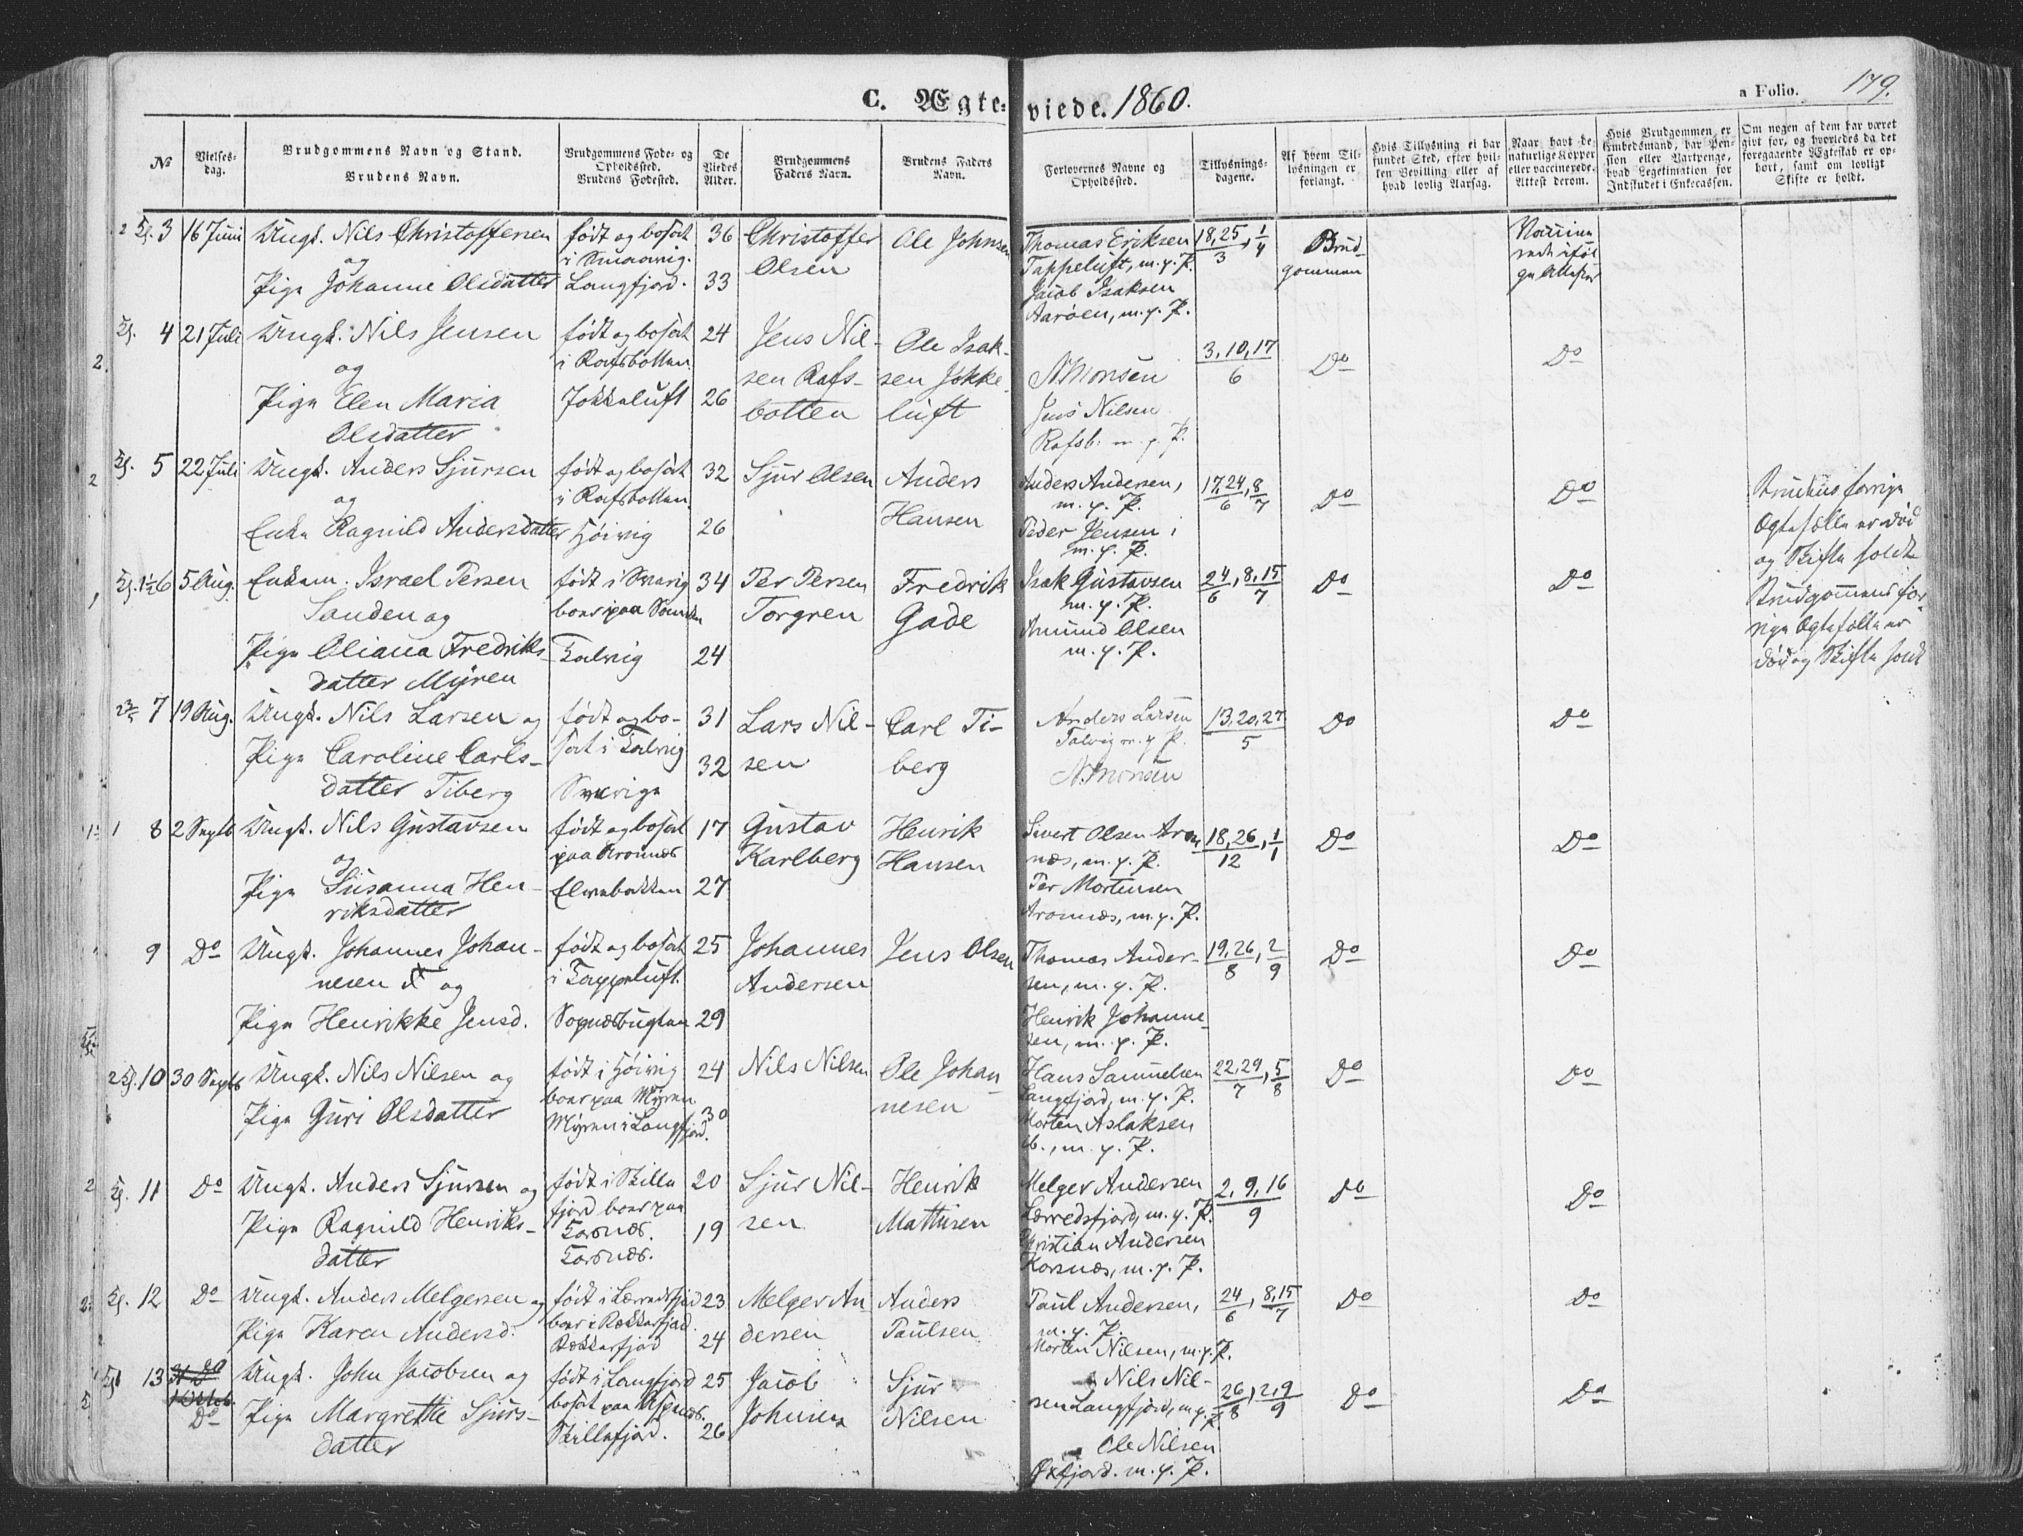 C. Ægte-viede. 1860.
a Folio. 179.
№
Vielses-dag.
Brudgommens Navn og Stand.
Brudens Navn.
Brudgommens Føde- og Opholdssted.
Brudens Fødested.
De Viedes Alder.
Brudgommens Faders Navn.
Brudens Faders Navn.
Forlovernes Navne og Opholdssted.
Tillysnings-dagene.
Af hvem Til-lysningen er forlangt.
Hvis Tillysning ei har fundet Sted, efter hvil-ken Bevilling eller af hvad lovlig Aarsag.
Naar havt de naturlige Kopper eller vaccinerede. Attest derom.
Hvis Brudgommen er Embedsmand, har Pen-sion eller Vartpenge, hvad Legetimation for Indskudet i Enkecassen.
Om nogen af dem har været givt for, og hvorledes da det foregaaende Ægteskab er op-hørt, samt om lovligt Skifte er holdt.
3 16 Juni Ungk. Nils Christoffersen født og bosat 36 Christoffer Ole Johnsen Thomas Eriksen 18,25/3, 1/4 Brud-
og i Smaavig. Olsen Tappeluft, m. p. P. gommen
Pige Johanne Olsdatter Langfjord. 33 Jacob Isaksen
Aarøen, m. p. P.
4 21 Juli Ungk. Nils Jensen født og bosat 24 Jens Nil- Ole Isak- 3,10,17/6 Do Do
og i Rafsbotten sen Rafs- sen Jokke- A. Monsen
Pige Elen Maria Jokkeluft 26 botten luft Jens Nilsen
Olsdatter Rafsb. m. p. P.
5 22 Juli Ungk. Anders Sjursen født og bosat 32 Sjur Olsen Anders Anders Andersen, 17,24/6, 8/7 Do Do Brudens forrige
og i Rafsbotten Hansen m. p. P. Ægtefælle er død
Enke Ragnild Andersdatter Høivig 26 Peder Jensen i og Skifte holdt
m. p. P.
6 5 Aug. Enkem. Israel Persen født i Sverig 34 Per Persen Fredrik Isak Gustavsen 24/6, 8,15/7 Do Do Brudgommens for-
Sanden og boer paa Sanden Torgren Gade m. p. P. rige Ægtefælle er
Pige Oliana Fredriks- Talvig 24 Amund Olsen død og Skifte holdt
datter Myren m. p. P.
7 19 Aug. Ungk. Nils Larsen og født og bo- 31 Lars Nil- Carl Ti- Anders Larsen 13,20,27/5 Do Do
Pige Caroline Carls- sat i Talvig 32 sen berg Talvig m. p. P.
datter Tiberg Sverige A. Monsen
8 2 Septb Ungk. Nils Gustavsen født og bosat 17 Gustav Henrik Sivert Olsen Aron- 18,26/12, 1/1 Do Do
og paa Aronnæs Karlberg Hansen næs, m. p. P.
Pige Susanna Hen- Elvebakken 27 Per Mortensen
riksdatter Aronnæs, m. p. P.
9 Do Ungk. Johannes Johan- født og bosat 25 Johannes Jens Olsen Thomas Ander- 19,26/8, 2/9 Do Do
nesen og i Tappeluft. Andersen sen, m. p. P.
Pige Henrikke Jensd. Sopnæsbugten 29 Henrik Johanne-
sen, m. p. P.
10 30 Septb Ungk. Nils Nilsen og født i Høivig 24 Nils Nilsen Ole Johan- Hans Samuelsen 22,29/7, 5/8 Do Do
Pige Guri Olsdatter boer paa Myren 30 nesen Langfjord, m. p. P.
Myren i Langfjord. Morten Aslaksen
ib., m. p. P.
11 Do Ungk. Anders Sjursen og født i Skille- 20 Sjur Nil- Henrik Melger Andersen 2,9,16/9 Do Do
Pige Ragnild Henriks- fjord boer paa 19 sen Mathisen Lærredsfjord, m. p. P.
datter Korsnæs. Christian Andersen
Korsnæs. Korsnæs, m. p. P.
12 Do Ungk. Anders Melgersen og født i Lerredsfjord 23 Melger An- Anders Paul Andersen, 24/6, 8,15/7 Do Do
Pige Karen Andersd. boer i Rækkerfjord. 24 dersen Paulsen m. p. P.
Rækkerfjord Morten Nilsen, m. p. P.
13 Do Ungk. John Jacobsen og født i Langfjord 25 Jacob Sjur Nils Nil- 26/8, 2,9/9 Do Do
Pige Margrethe Sjurs- bosat paa 26 Johnsen Nilsen sen Langfjord, m. p. P.
datter Skillefjord. Ole Nilsen
Øxfjord. m. p. P.